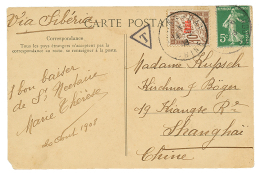 Via Sibérie
CARTE POSTALE
Correspondance
Tous les pays étrangers n'acceptent pas la
correspondance au recto, se renseigner à la poste
T
5c
1 bon baiser
de St Nectaire
Marie Thérèse
Août 1908
Madame Kupsch
Kirchner & Böger
19 Kiangse Rd
Shanghaï
Chine